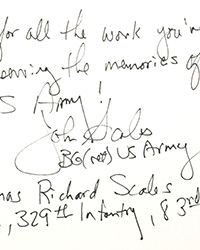 for all the work you'v
serving the memories of
S Army!
John Scales
BG(ret) US Army
mas Richard Scales
, 329th Infantry, 83rd